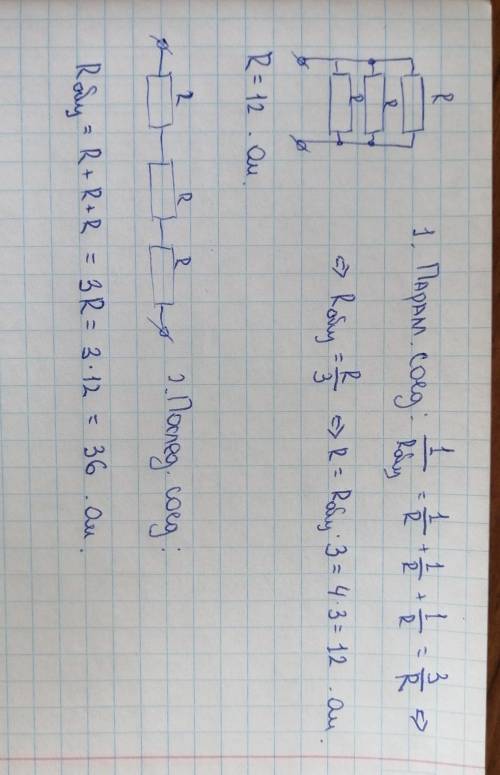 R
R
R
1. Парал. соед: 1/Rобщ = 1/R + 1/R + 1/R = 3/R =>
=> Rобщ = R/3 => R = Rобщ·3 = 4·3 = 12 . Ом.
R = 12 . Ом.
R R R
2. Послед. соед:
Rобщ = R + R + R = 3R = 3·12 = 36 . Ом.